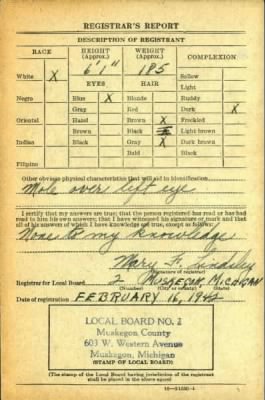 REGISTRAR'S REPORT
DESCRIPTION OF REGISTRANT
RACE HEIGHT (Approx.) WEIGHT (Approx.) COMPLEXION
6'1" 185
White X EYES HAIR Sallow
Light
Negro Blue X Blonde Ruddy
Gray Red Dark X
Oriental Hazel Brown X Freckled
Brown Black Light brown
Indian Black Gray X Dark brown
Bald Black
Filipino
Other obvious physical characteristics that will aid in identification
Mole over left eye
I certify that my answers are true; that the person registered has read or has had
read to him his own answers; that I have witnessed his signature or mark and that
all of his answers of which I have knowledge are true, except as follows:
None to my knowledge
Mary F. Lindsley
(Signature of registrar)
Registrar for Local Board 2 MUSKEGON, MICHIGAN
(Number) (City or county) (State)
Date of registration FEBRUARY 16, 1942
LOCAL BOARD NO. 2
Muskegon County
603 W. Western Avenue
Muskegon, Michigan
(STAMP OF LOCAL BOARD)
(The stamp of the Local Board having jurisdiction of the registrant
shall be placed in the above space)